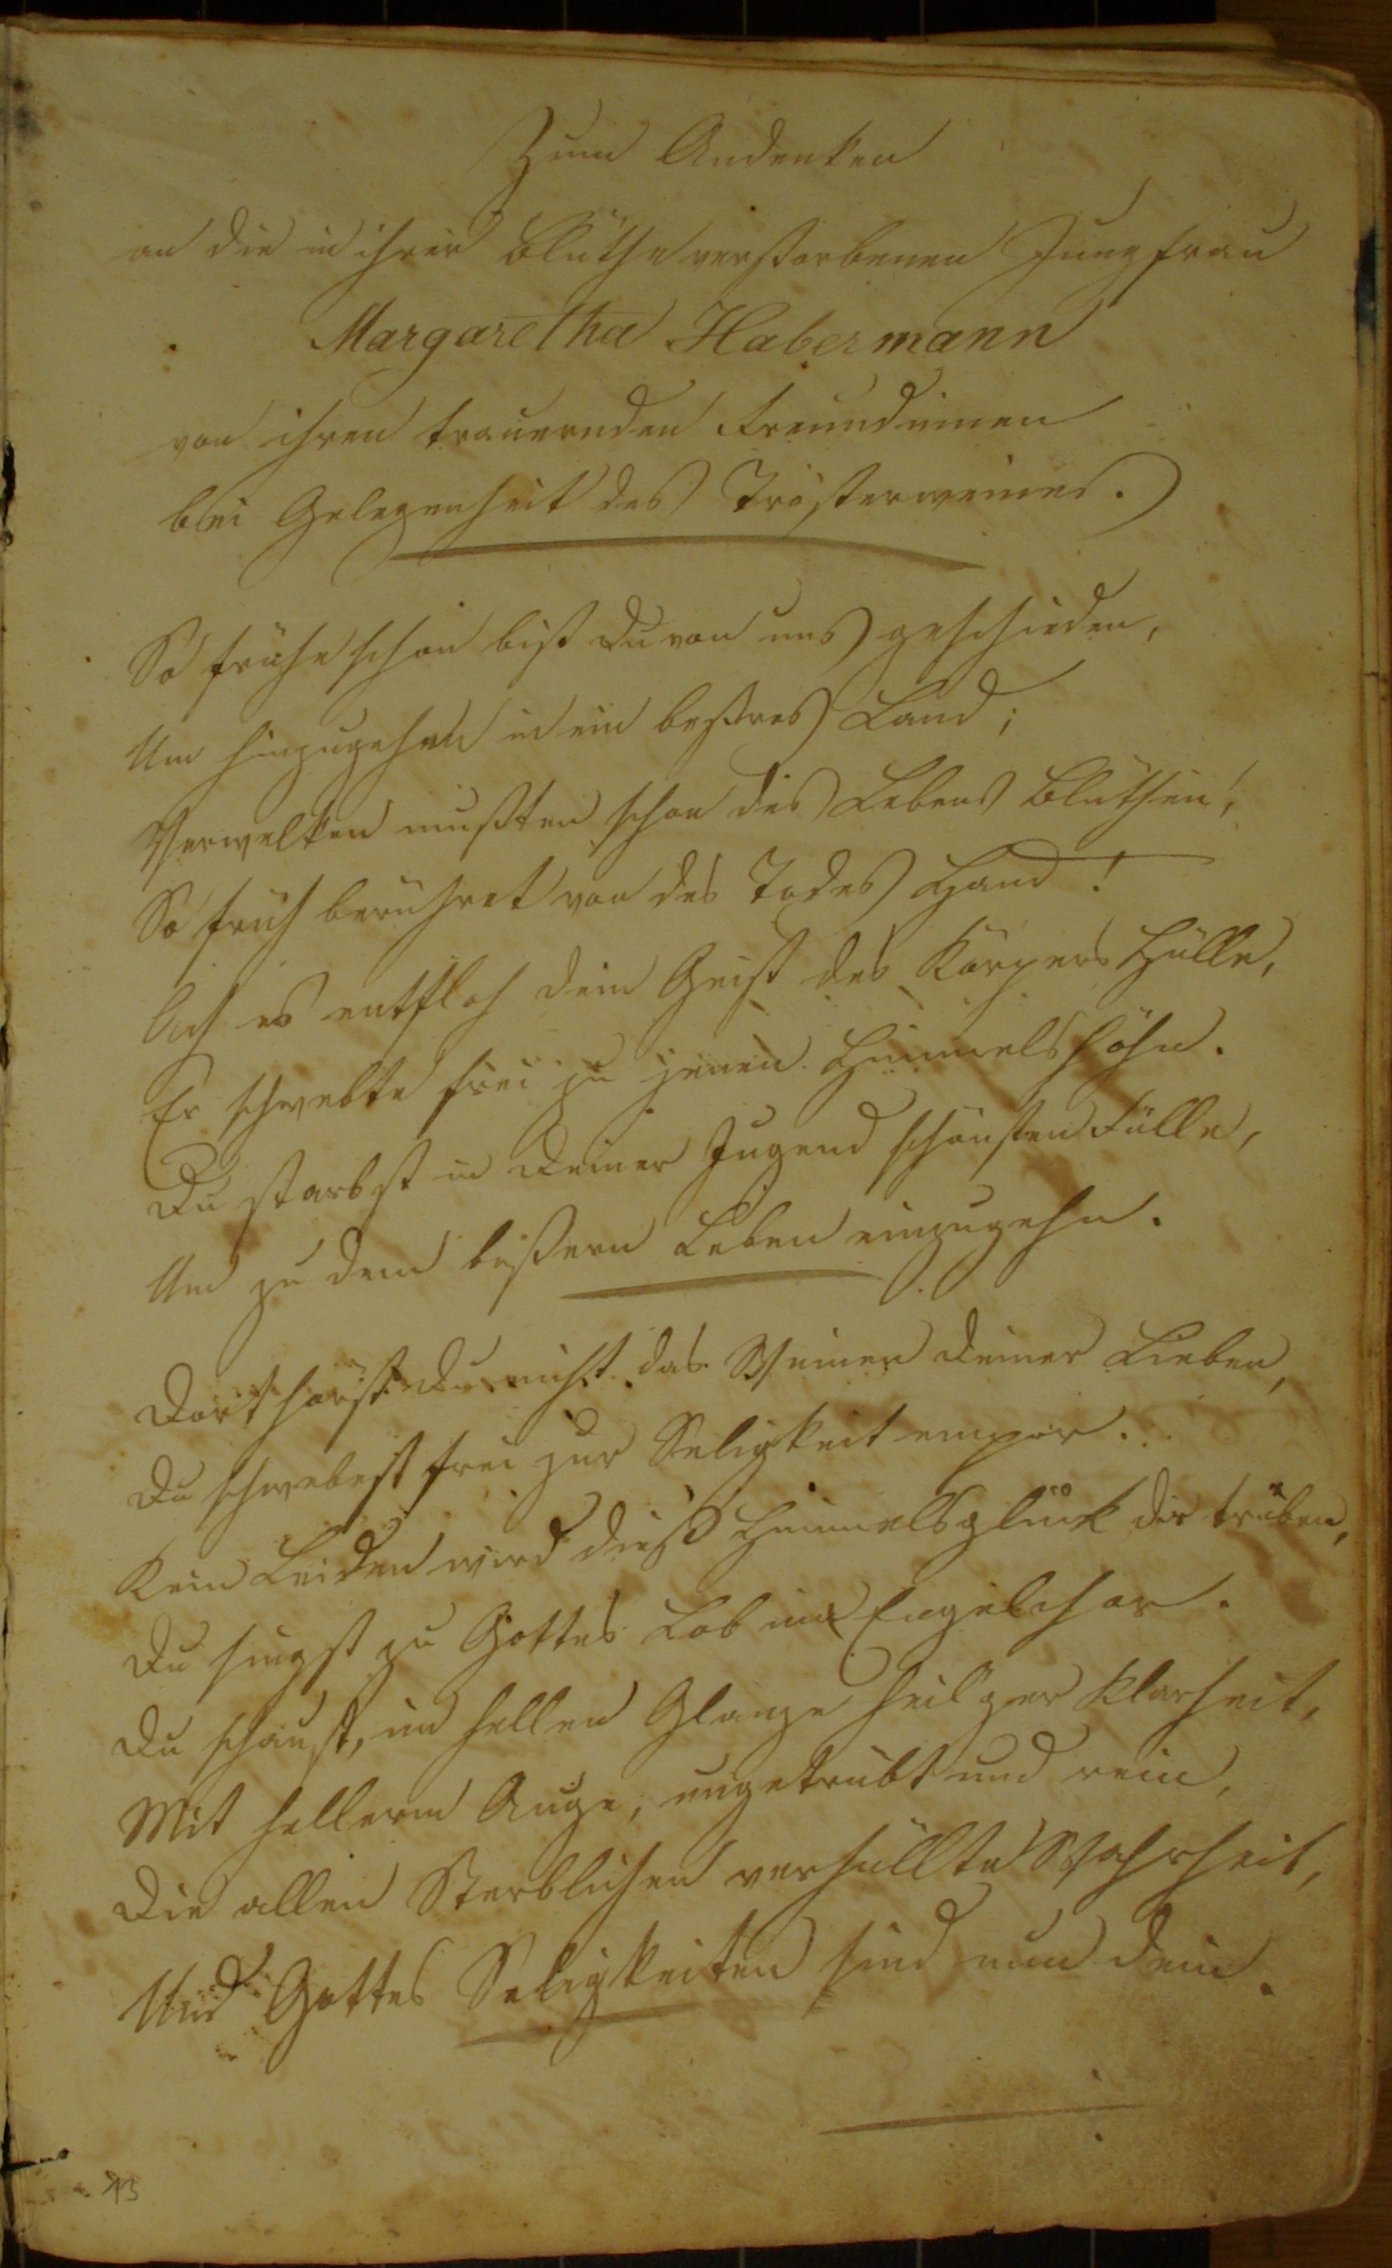 Zum Andenken
an die in ihrer Blüthe verstorbenen Jungfrau
Margaretha Habermann
von ihren trauernden Freundinen
bei Gelegenheit des Trösterweines.
So frühe schon bist Du von uns geschieden,
Um hinzugehen in ein beßres Land;
Verwelken mußten schon des Lebens Blüthen,
So früh berühret von des Todes Hand!
Ach es entfloh dein Geist des Körpers Hülle,
Er schwebte frei zu jenen Himmelshöhn.
Du starbst in Deiner Jugend schönsten Fülle,
Um zu dem beßern Leben einzugehn.
Dort hörst Du nicht das Weinen Deiner Lieben,
Du schwebest frei zur Seligkeit empor.
Kein Leiden wird dieß Himmelsglück dir trüben,
Du singst zu Gottes Lob im Engelchor.
Du schaust, im hellen Glanze heil'ger Klarheit,
Mit hellerm Auge, ungetrübt und rein,
Die allen Sterblichen verhüllte Wahrheit,
Und Gottes Seligkeiten sind nun dein.